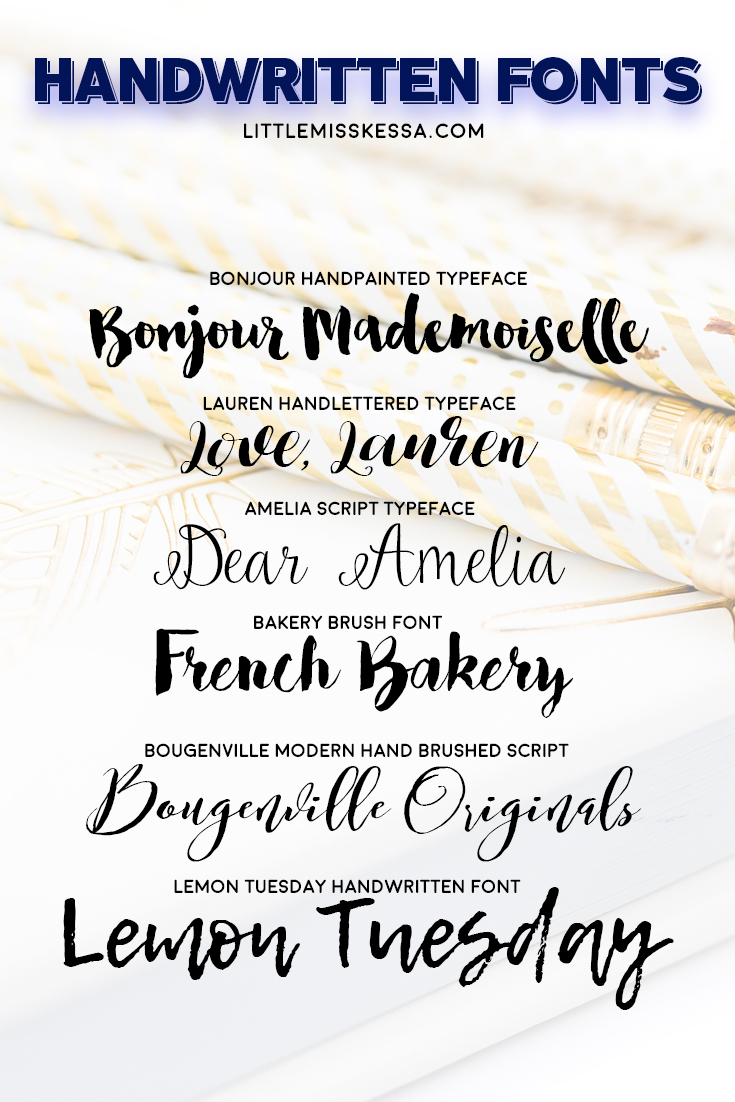 HANDWRITTEN FONTS
LITTLEMISSKESSA.COM
BONJOUR HANDPAINTED TYPEFACE
Bonjour Mademoiselle
LAUREN HANDLETTERED TYPEFACE
Love, Lauren
AMELIA SCRIPT TYPEFACE
Dear Amelia
BAKERY BRUSH FONT
French Bakery
BOUGENVILLE MODERN HAND BRUSHED SCRIPT
Bougenville Originals
LEMON TUESDAY HANDWRITTEN FONT
Lemon Tuesday